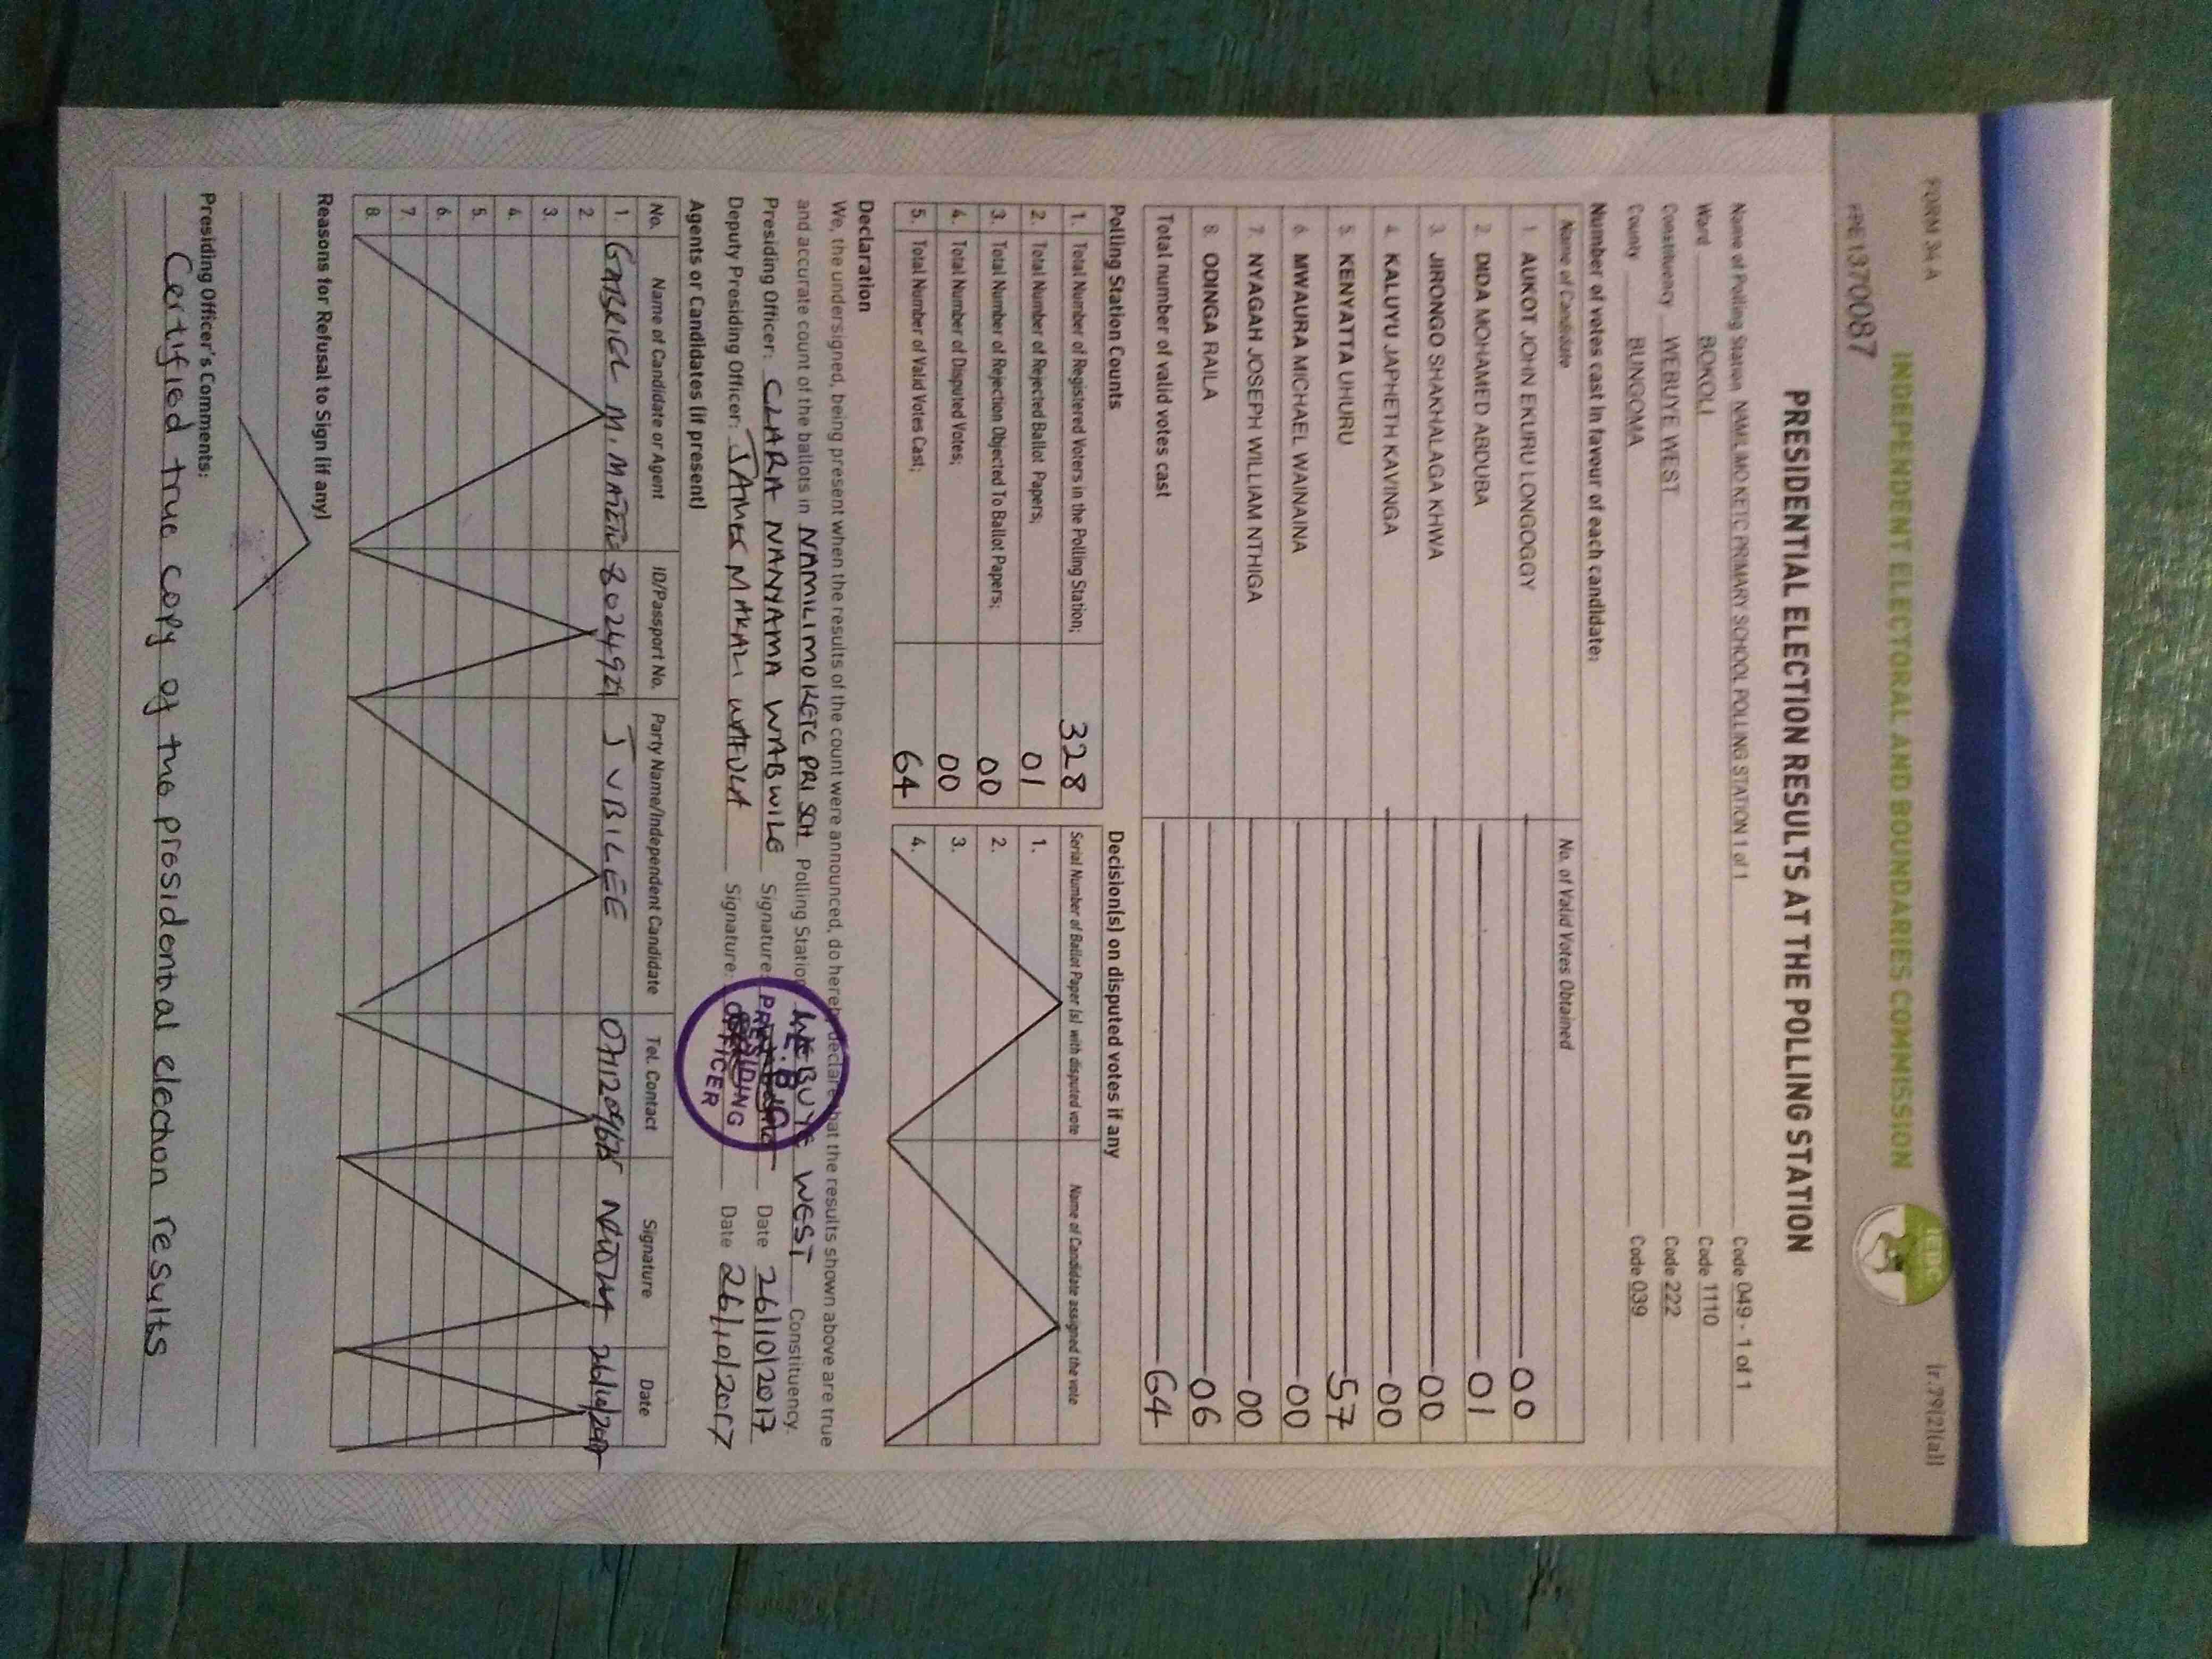 FORM 34 A
(r.79(2)(a))
INDEPENDENT ELECTORAL AND BOUNDARIES COMMISSION
IEBC
PRESIDENTIAL ELECTION RESULTS AT THE POLLING STATION
Name of Polling Station NAMILIMO KETC PRIMARY SCHOOL POLLING STATION 1 of 1 Code 049 - 1 of 1
Ward BOKOLI Code 1110
Constituency WEBUYE WEST Code 222
County BUNGOMA Code 039
Number of votes cast in favour of each candidate:
Name of Candidate No. of Valid Votes Obtained
1. AUKOT JOHN EKURU LONGOGGY 00
2. DIDA MOHAMED ABDUBA 01
3. JIRONGO SHAKHALAGA KHWA 00
4. KALUYU JAPHETH KAVINGA 00
5. KENYATTA UHURU 57
6. MWAURA MICHAEL WAINAINA 00
7. NYAGAH JOSEPH WILLIAM NTHIGA 00
8. ODINGA RAILA 06
Total number of valid votes cast 64
Polling Station Counts
1. Total Number of Registered Voters in the Polling Station; 328
2. Total Number of Rejected Ballot Papers; 01
3. Total Number of Rejection Objected To Ballot Papers; 00
4. Total Number of Disputed Votes; 00
5. Total Number of Valid Votes Cast; 64
Decision(s) on disputed votes if any
Serial Number of Ballot Paper (s) with disputed vote Name of Candidate assigned the vote
1.
2.
3.
4.
Declaration
We, the undersigned, being present when the results of the count were announced, do hereby declare that the results shown above are true
and accurate count of the ballots in NAMILIMOKETC PRI SCH Polling Station WEBUYE WEST Constituency.
Presiding Officer: CLARA NANYAMA WABWILE Signature: Date 26/10/2017
Deputy Presiding Officer: JAMES MAKALI WAFULA Signature: Date 26/10/2017
PRESIDING
OFFICER
Agents or Candidates (if present)
No. Name of Candidate or Agent ID/Passport No. Party Name/Independent Candidate Tel. Contact Signature Date
1. GABRIEL M. JUBILEE 26/10/2017
2.
3.
4.
5.
6.
7.
8.
Reasons for Refusal to Sign (if any)
Presiding Officer's Comments:
Certified true copy of the presidential election results